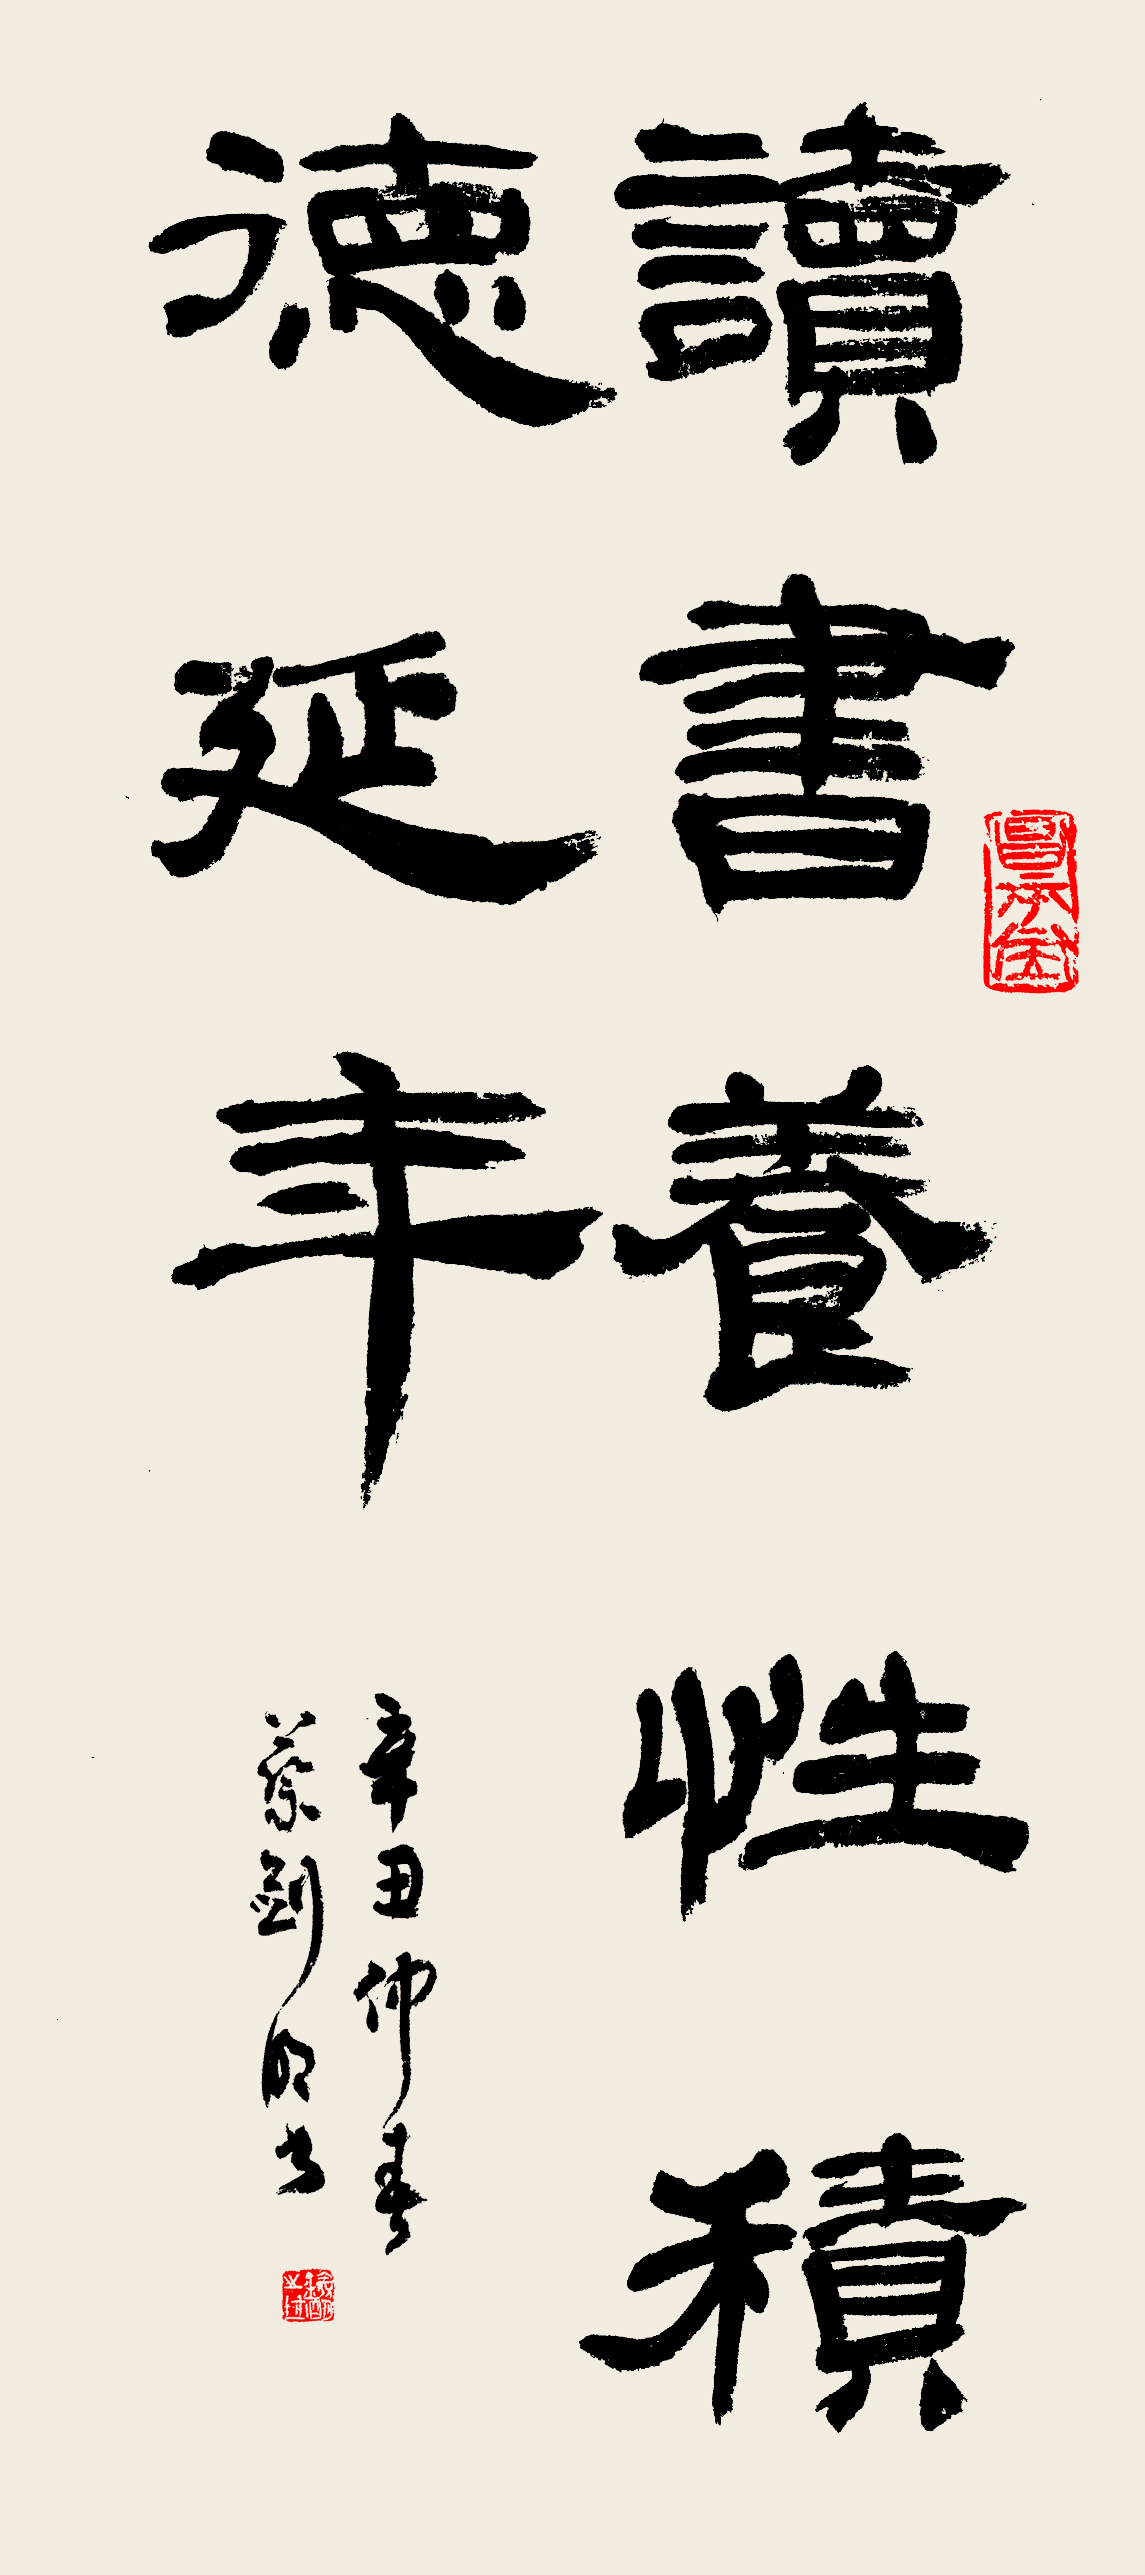 讀書養性積
德延年
辛丑仲春
蔡劍明書